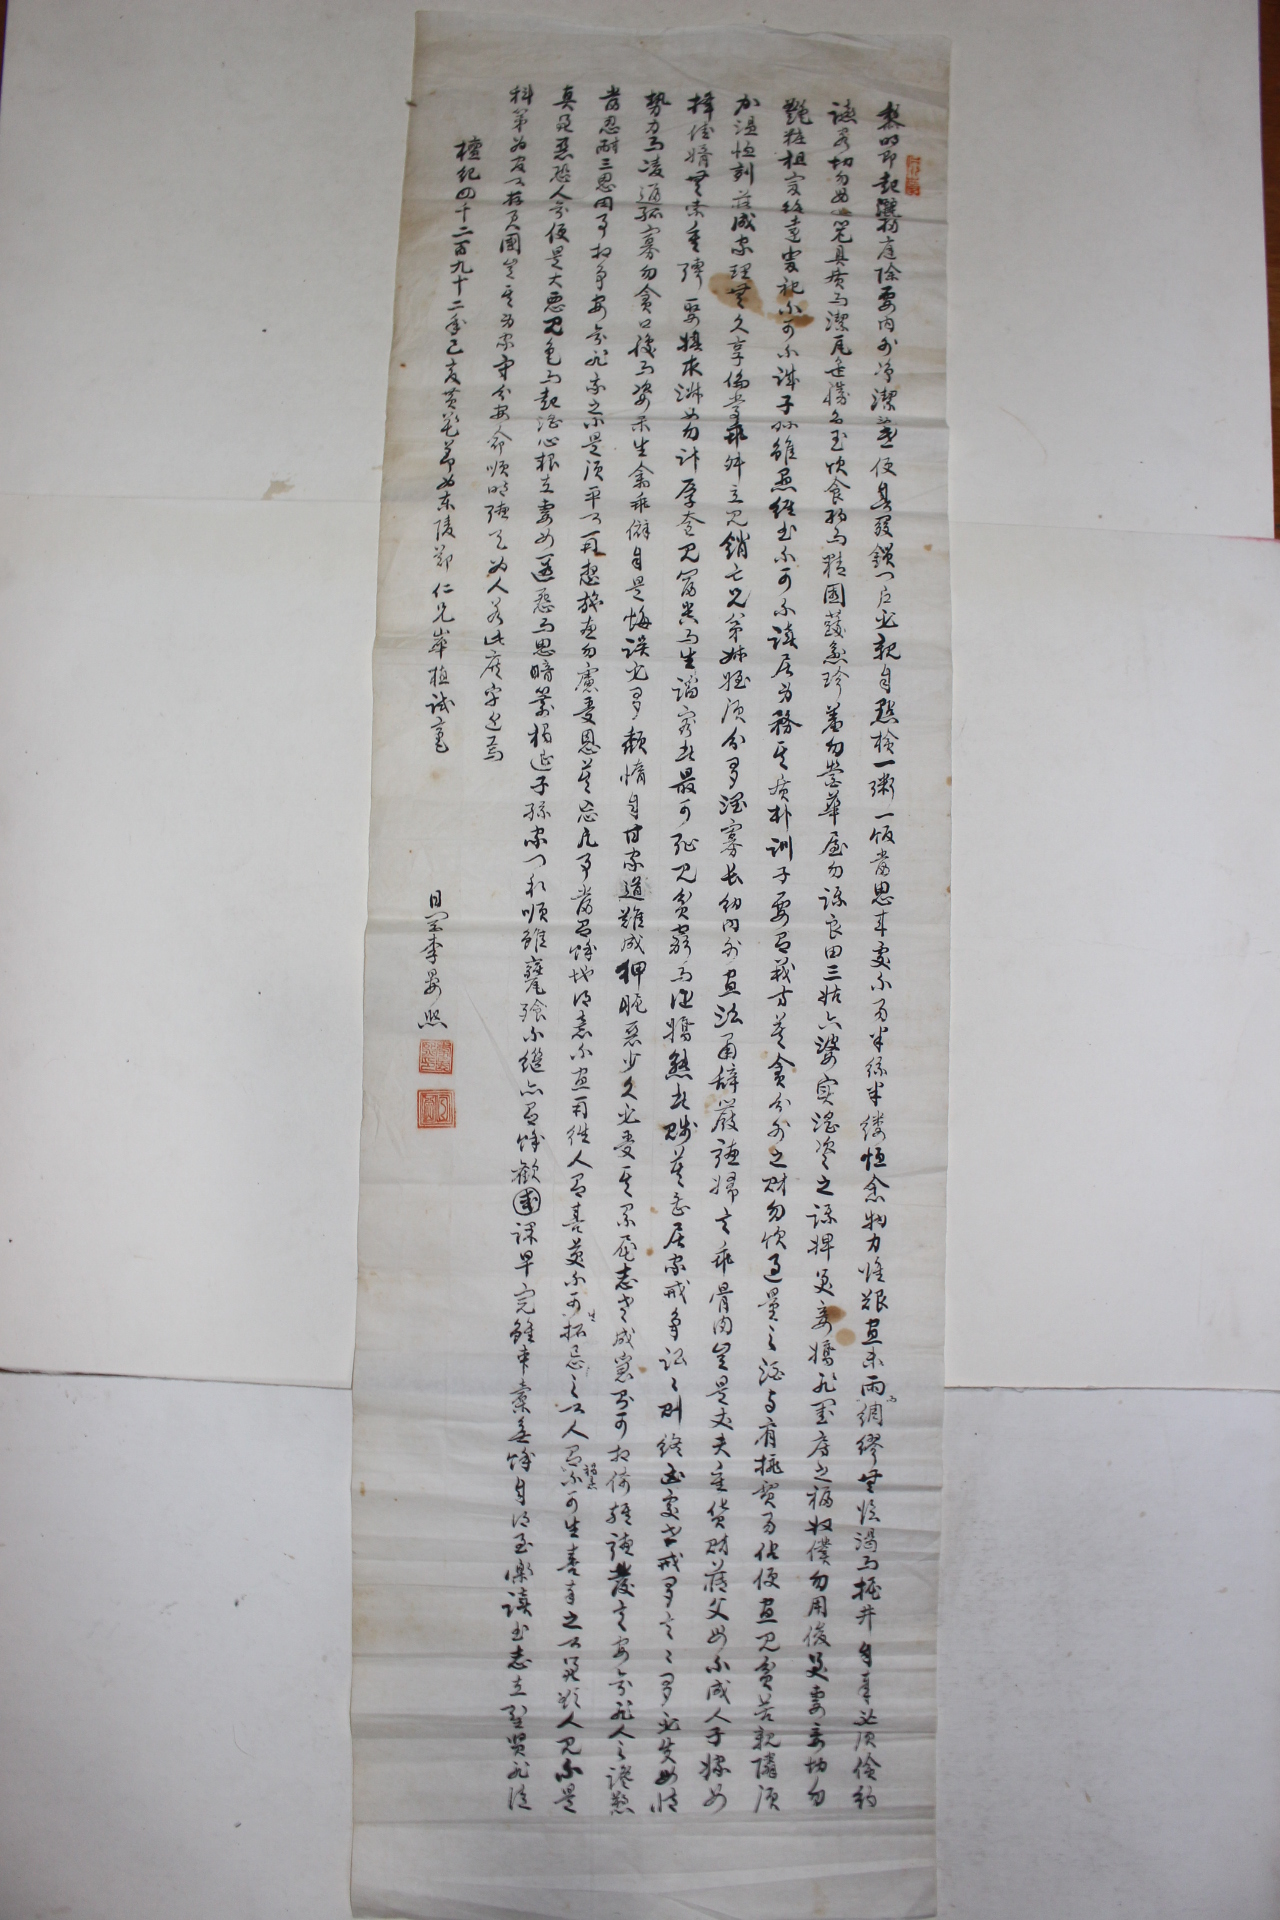 黎明即起灑掃庭除要內外淨潔旣昏便息鎖門戶必親自點檢一粥一飯當思來處不易半絲半縷恒念物力惟艱宜未雨而綢繆無臨渴而掘井自奉必須儉約
讌客切勿留連器具質而潔瓦缶勝金玉飲食約而精園蔬愈珍羞勿營華屋勿謀良田三姑六婆實淫盜之媒婢美妾嬌非閨房之福奴僕勿用俊美妻妾切勿
艷粧祖宗雖遠祭祀不可不誠子孫雖愚經書不可不讀居身務其質朴訓子要有義方莫貪分外之財勿飲過量之酒與肩挑貿易佔便宜見貧苦親隣須
加溫恤刻薄成家理無久享倫常乖舛立見銷亡兄弟姊姪須分多潤寡長幼內外宜法肅辭嚴聽婦言乖骨肉豈是丈夫重貨財薄父母不成人子嫁女
擇佳婿無索重聘娶媳求淑女勿計厚奩見富貴而生諂容者最可恥見貧窮而作驕態者賤莫甚居家戒爭訟訟則終凶處世戒多言言多必失毋恃
勢力而凌逼孤寡勿貪口腹而恣殺生禽乖僻自是悔誤必多頹惰自甘家道難成狎昵惡少久必受其累屈志老成急則可相倚輕聽發言安知非人之譖愬
當忍耐三思因事相爭安知非我之不是須平心再想施惠勿念受恩莫忘凡事當留餘地得意不宜再往人有喜慶不可生妬忌之心人有禍患不可生喜幸之心善欲人見不是
眞善惡恐人知便是大惡見色而起淫心報在妻女匿怨而用暗箭禍延子孫家門和順雖饔飧不繼亦有餘歡國課早完雖囊橐無餘自得至樂讀書志在聖賢非徒
科第爲官心存君國豈計身家守分安命順時聽天爲人若此庶乎近焉
檀紀四千二百九十二年己亥黃花節爲東陵鄭仁兄峯植試毫
李晏熙